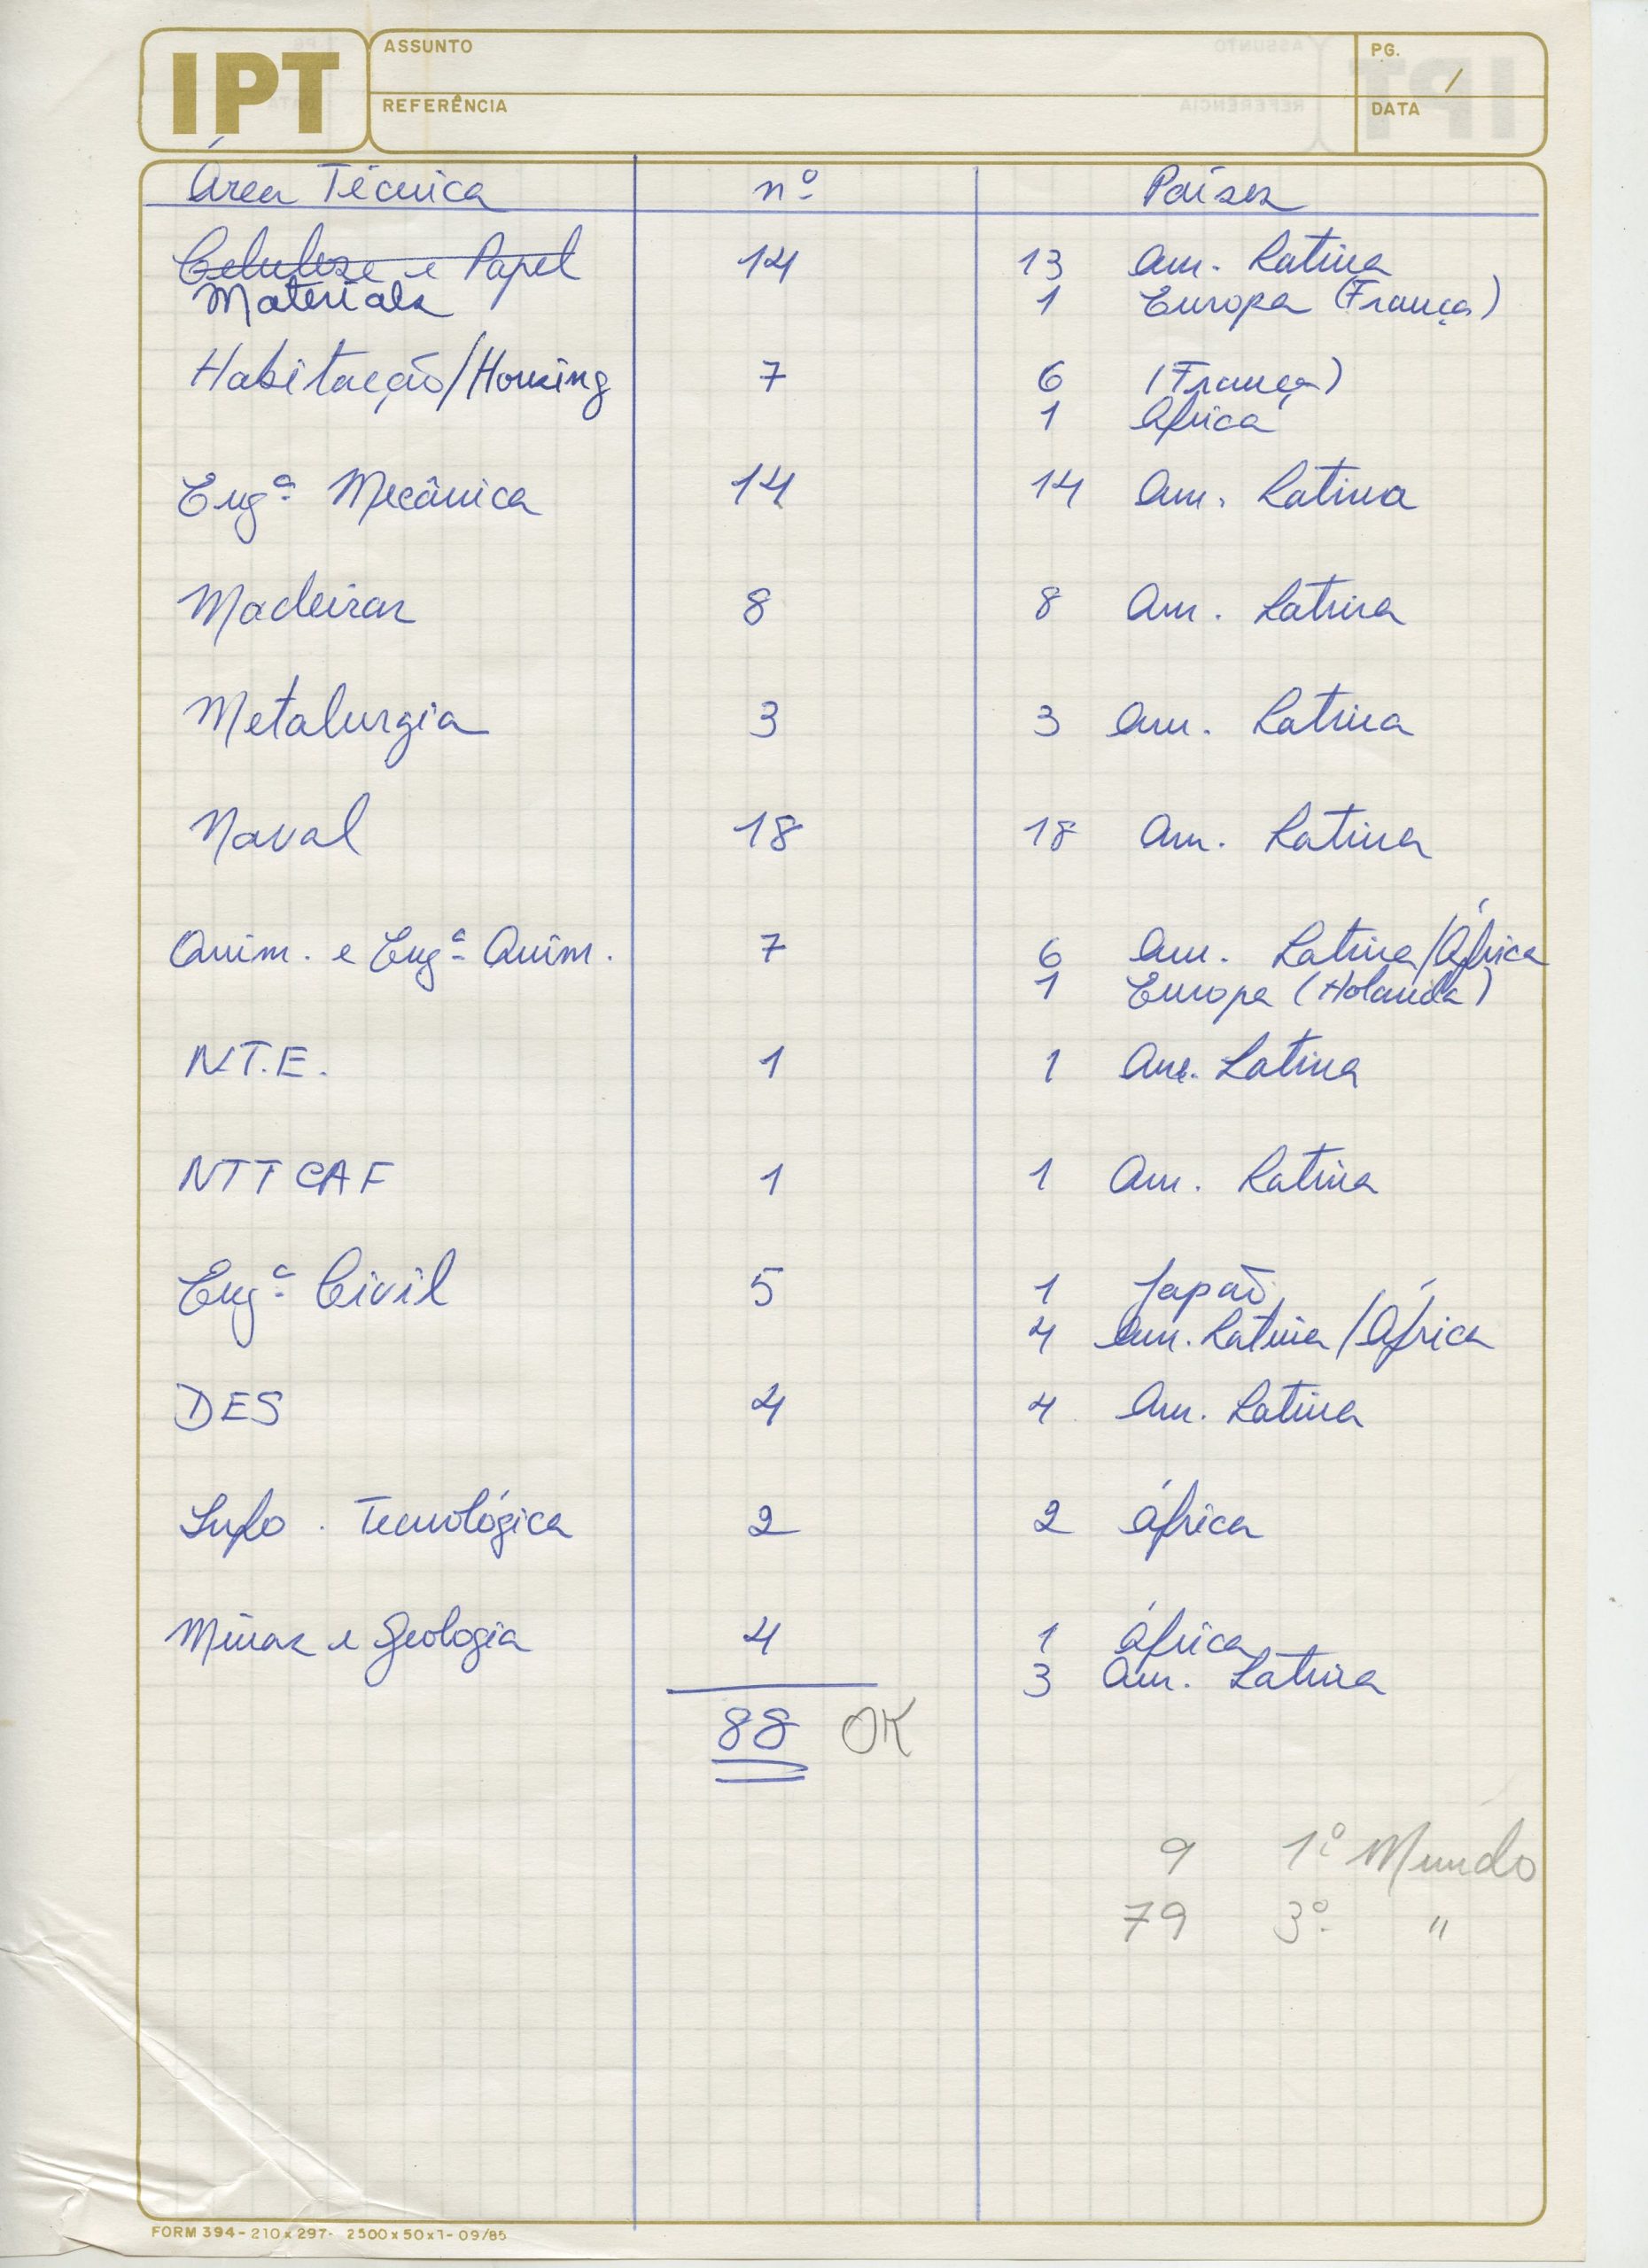 IPT
ASSUNTO
PG.
/
REFERÊNCIA
DATA
Área Técnica nº Países
Celulose e Papel 14 13 Am. Latina
Materials 1 Europa (França)
Habitação/Housing 7 6 (França)
1 Africa
Engª Mecânica 14 14 Am. Latina
Madeiras 8 8 Am. Latina
Metalurgia 3 3 Am. Latina
Naval 18 18 Am. Latina
Quim. e Engª Quim. 7 6 Am. Latina/África
1 Europa (Holanda)
N.T.E. 1 1 Am. Latina
NTTCAF 1 1 Am. Latina
Engª Civil 5 1 Japão
4 Am. Latina/África
DES 4 4 Am. Latina
Info. Tecnológica 2 2 África
Minas e Geologia 4 1 África
3 Am. Latina
88 OK
9 1º Mundo
79 3º "
FORM 394-210x297- 2500x50x1-09/85